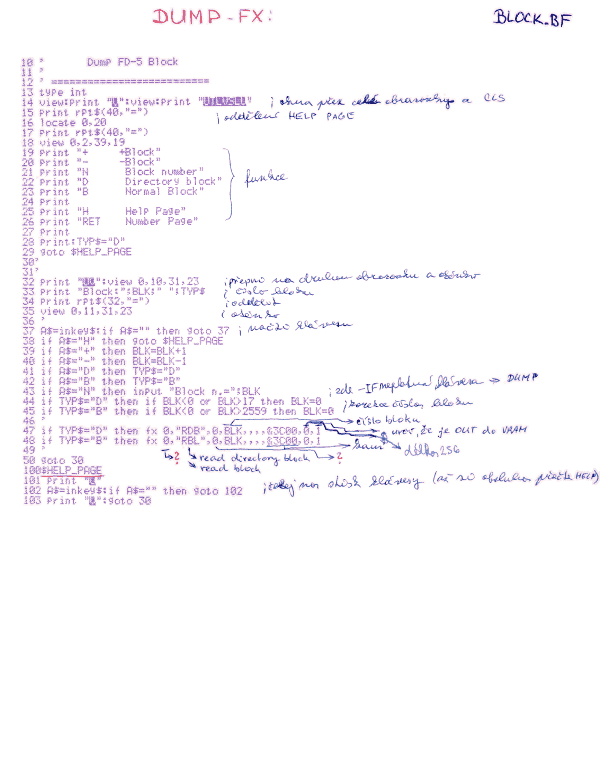 DUMP-FX: BLOCK.BF
10 ' DumP FD-5 Block
11 '
12 ' ==========================
13 tYPe int
14 view:Print " ":view:Print " " ; obrazovky a CLS
15 Print rPt$(40,"=") ; oddělení HELP PAGE
16 locate 0,20
17 Print rPt$(40,"=")
18 view 0,2,39,19
19 Print "+ +Block"
20 Print "- -Block"
21 Print "N Block number"
22 Print "D DirectorY block" funkce
23 Print "B Normal Block"
24 Print
25 Print "H HelP Page"
26 Print "RET Number Page"
27 Print
28 Print:TYP$="D"
29 goto $HELP_PAGE
30'
31'
32 Print " ":view 0,10,31,23 ; přepni na druhou obrazovku a
33 Print "Block:";BLK;" ";TYP$ ; číslo bloku
34 Print rPt$(32,"=") ; oddělit
35 view 0,11,31,23 ; okénko
36 '
37 A$=inkeY$:if A$="" then goto 37 ; načti klávesu
38 if A$="H" then goto $HELP_PAGE
39 if A$="+" then BLK=BLK+1
40 if A$="-" then BLK=BLK-1
41 if A$="D" then TYP$="D"
42 if A$="B" then TYP$="B"
43 if A$="N" then inPut "Block n.=";BLK ; zde -IF neplatná klávesa ⇒ DUMP
44 if TYP$="D" then if BLK<0 or BLK>17 then BLK=0 ; korekce čísla bloku
45 if TYP$="B" then if BLK<0 or BLK>2559 then BLK=0
46 ' číslo bloku
47 if TYP$="D" then fx 0,"RDB",0,BLK,,,,%3C00,0,1 určí, že je OUT do VRAM
48 if TYP$="B" then fx 0,"RBL",0,BLK,,,,%3C00,0,1
49 ' délka 256
50 goto 30 ? read directory block ?
read block
100$HELP_PAGE
101 Print " "
102 A$=inkeY$:if A$="" then goto 102 ; stisk klávesy (až si obsluha přečte HELP)
103 Print " ":goto 30